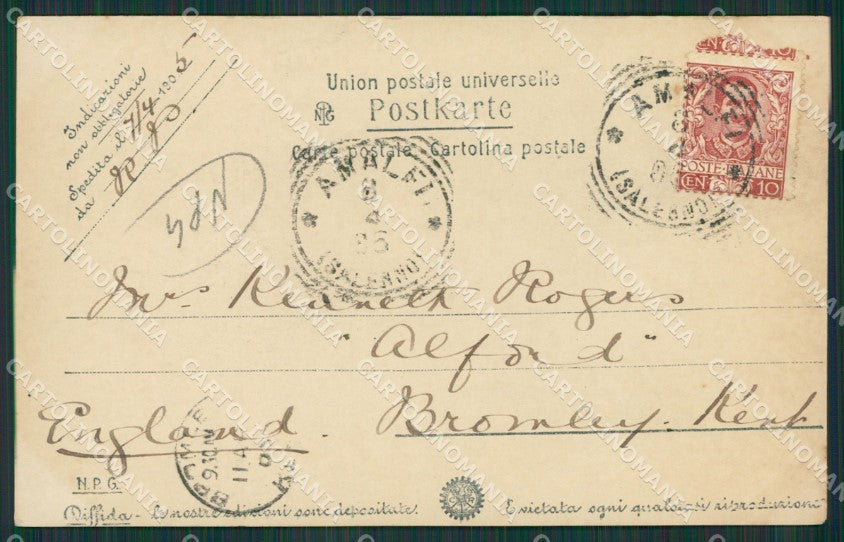 Indicazioni
non obbligatorie
Spedita il 7/4 1905
da
Union postale universelle
NPG
Postkarte
Carte postale Cartolina postale
AMALFI
8
4
05
(SALERNO)
AMALFI
8
4
(SALERNO)
POSTE ITALIANE
CENT. 10
Mrs Kenneth Rogers
"Alford"
Bromley. Kent
England.
BROMLEY
9.30 AM
11 AP
N.P.G.
Diffida - le nostre edizioni sono depositate.
E vietata ogni qualsiasi riproduzione
CARTOLINOMANIA